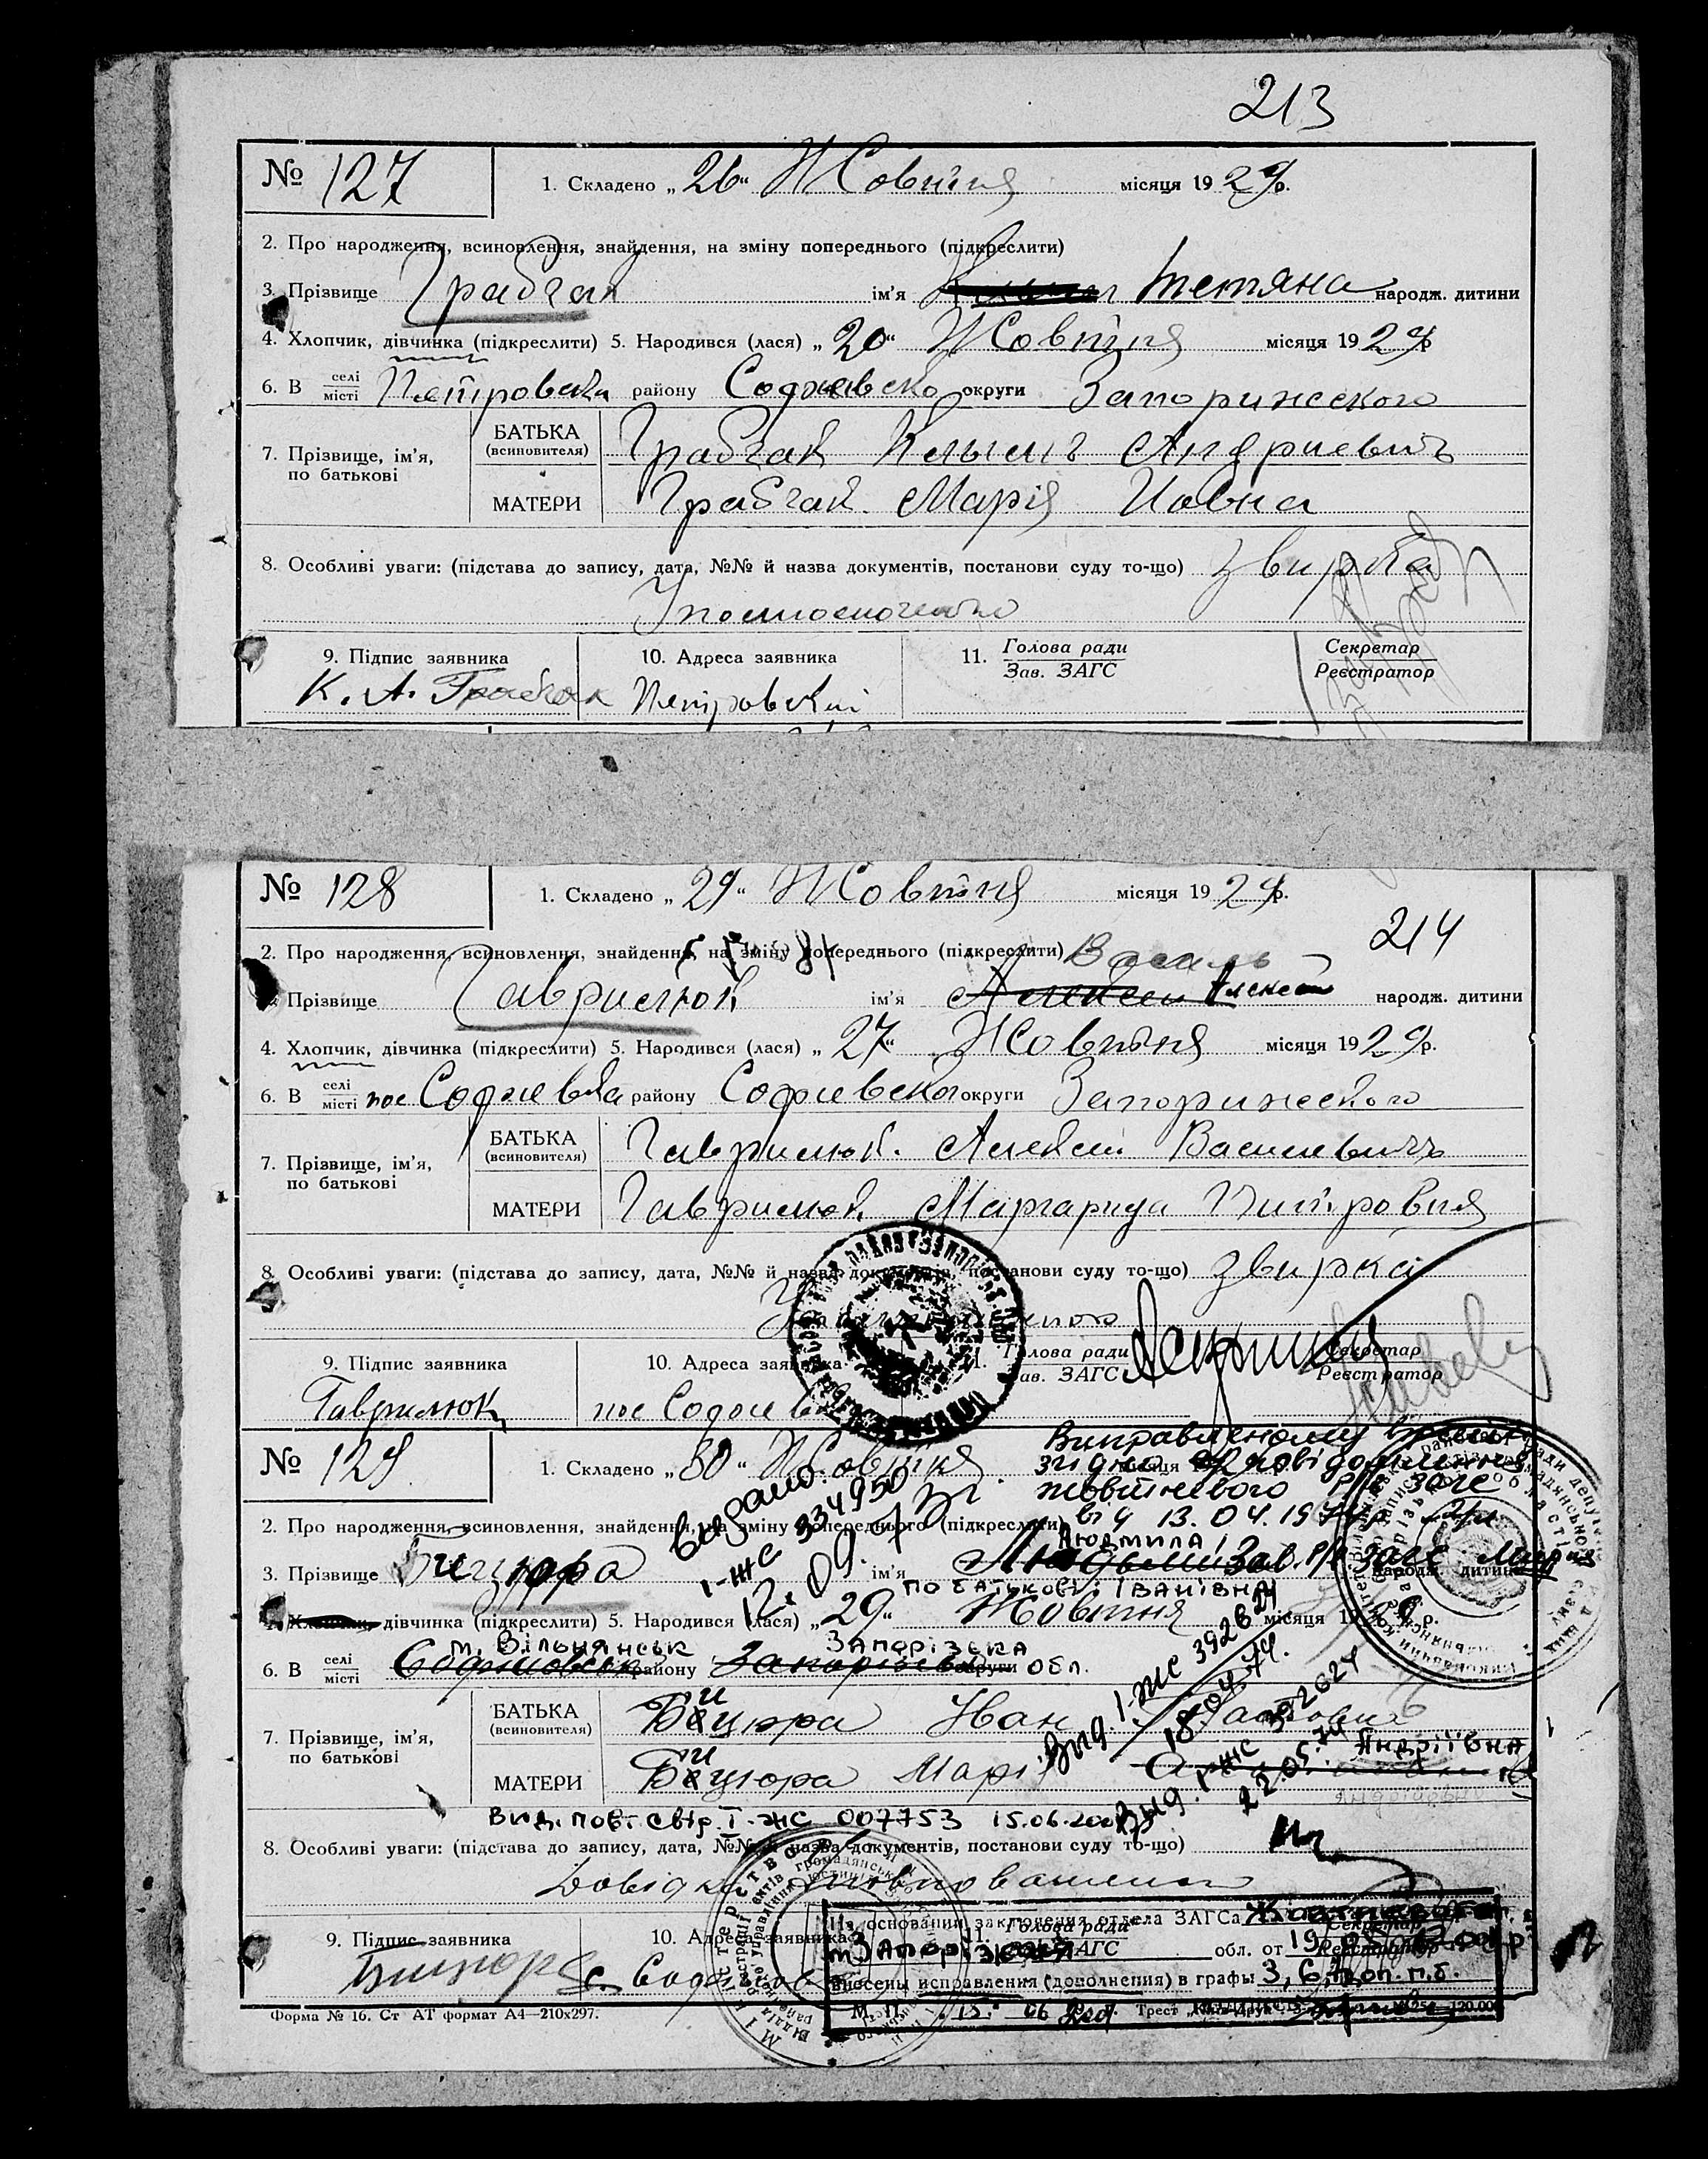 213
№ 127 1. Складено „ 26 “ Жовтня місяця 19 29 р.
2. Про народження, всиновлення, знайдення, на зміну попереднього (підкреслити)
3. Прізвище Грабчак ім'я Тетяна народж. дитини
4. Хлопчик, дівчинка (підкреслити) 5. Народився (лася) „ 20 “ Жовтня місяця 19 29 р
6. В селі місті Петровська району Софиевско округи Запорижского
7. Прізвище, ім'я, по батькові
БАТЬКА (всиновителя) Грабчак Клыменъ Андриевичъ
МАТЕРИ Грабчак Марія Иовна
8. Особливі уваги: (підстава до запису, дата, №№ й назва документів, постанови суду то-що) звирка
9. Підпис заявника 10. Адреса заявника 11. Голова ради Зав. ЗАГС Секретар Реєстратор
К. А. Грабчак Петровский
№ 128 1. Складено „ 29 “ Жовтня місяця 19 29 р.
214
2. Про народження, всиновлення, знайдення, на зміну попереднього (підкреслити) Василь
Прізвище Гаврилюк ім'я Алексей Алексей народж. дитини
4. Хлопчик, дівчинка (підкреслити) 5. Народився (лася) „ 27 “ Жовтня місяця 19 29 р.
6. В селі місті пос Софиевка району Софиевского округи Запорижского
7. Прізвище, ім'я, по батькові
БАТЬКА (всиновителя) Гаврилюк. Алексей Васильевичъ
МАТЕРИ Гаврилюк Маргарита Питровня
8. Особливі уваги: (підстава до запису, дата, №№ й назва документів, постанови суду то-що) звирка
9. Підпис заявника 10. Адреса заявника 11. Голова ради Зав. ЗАГС Секретар Реєстратор
Гаврилюк пос Софиевка
№ 129 1. Складено „ 30 “ Жовтня
Виправленому вірити
згідно повідомлення
Жовтневого р/в загс
від 13.04.1974р
2. Про народження, всиновлення, знайдення, на зміну попереднього (підкреслити)
видано
I-ЖС 334950
12.09.73г.
Людмила
3. Прізвище Бицюра ім'я народж. дитини
Зав. р/в загс
по батькові: Іванівна
4. Хлопчик, дівчинка (підкреслити) 5. Народився (лася) „ 29 “ Жовтня місяця 19 29 р.
м. Вільнянськ Запорізька
6. В селі місті району округи обл.
Вид. I-ЖС 392624
18.04.74.
7. Прізвище, ім'я, по батькові
БАТЬКА (всиновителя) Бицюра Иван
Вид. I-ЖС 392627
22.05.74
Андріївна
МАТЕРИ Бицюра Марія
Вид. повт. свід. I-ЖС 007753 15.06.200
8. Особливі уваги: (підстава до запису, дата, №№ й назва документів, постанови суду то-що)
Довідка
На основании заключения отдела ЗАГСа
9. Підпис заявника 10. Адреса заявника 11. Голова ради ЗАГС Секретар Реєстратор
м Запоріжжя обл. от 19.05.200 р
Внесены исправления (дополнения) в графы 3, 6, доп. п.б.
М. П. 15. 06
Форма № 16. Ст АТ формат А4—210х297. Трест